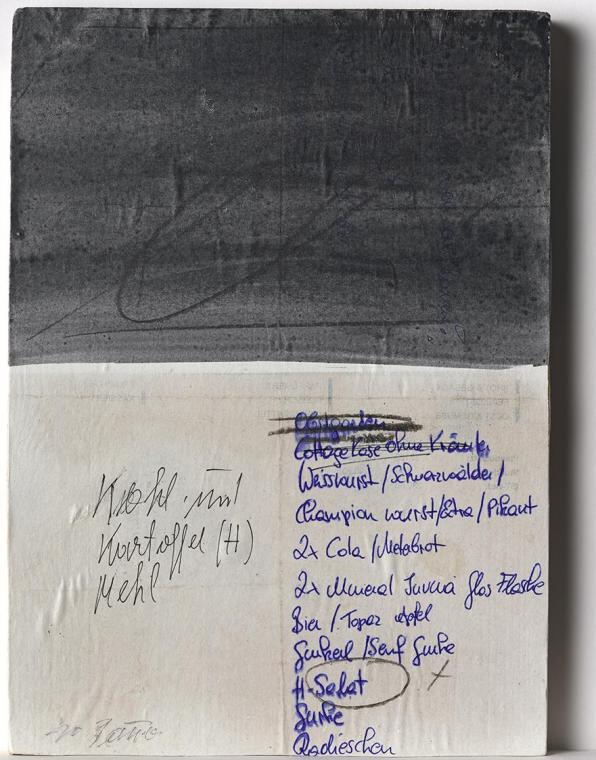 Kohl und
Kartoffel (H)
Mehl
Obstgarten
Cottage Käse ohne Kräuter
Weisswurst / Schwarzwälder /
Champion wurst / Extra / Pikant
2x Cola / Metabrot
2x Mineral Juvina glas Flasche
Bier / Topaz apfel
Gurkerl / Senf Gurke
H-Salat
Gurke
Radieschen